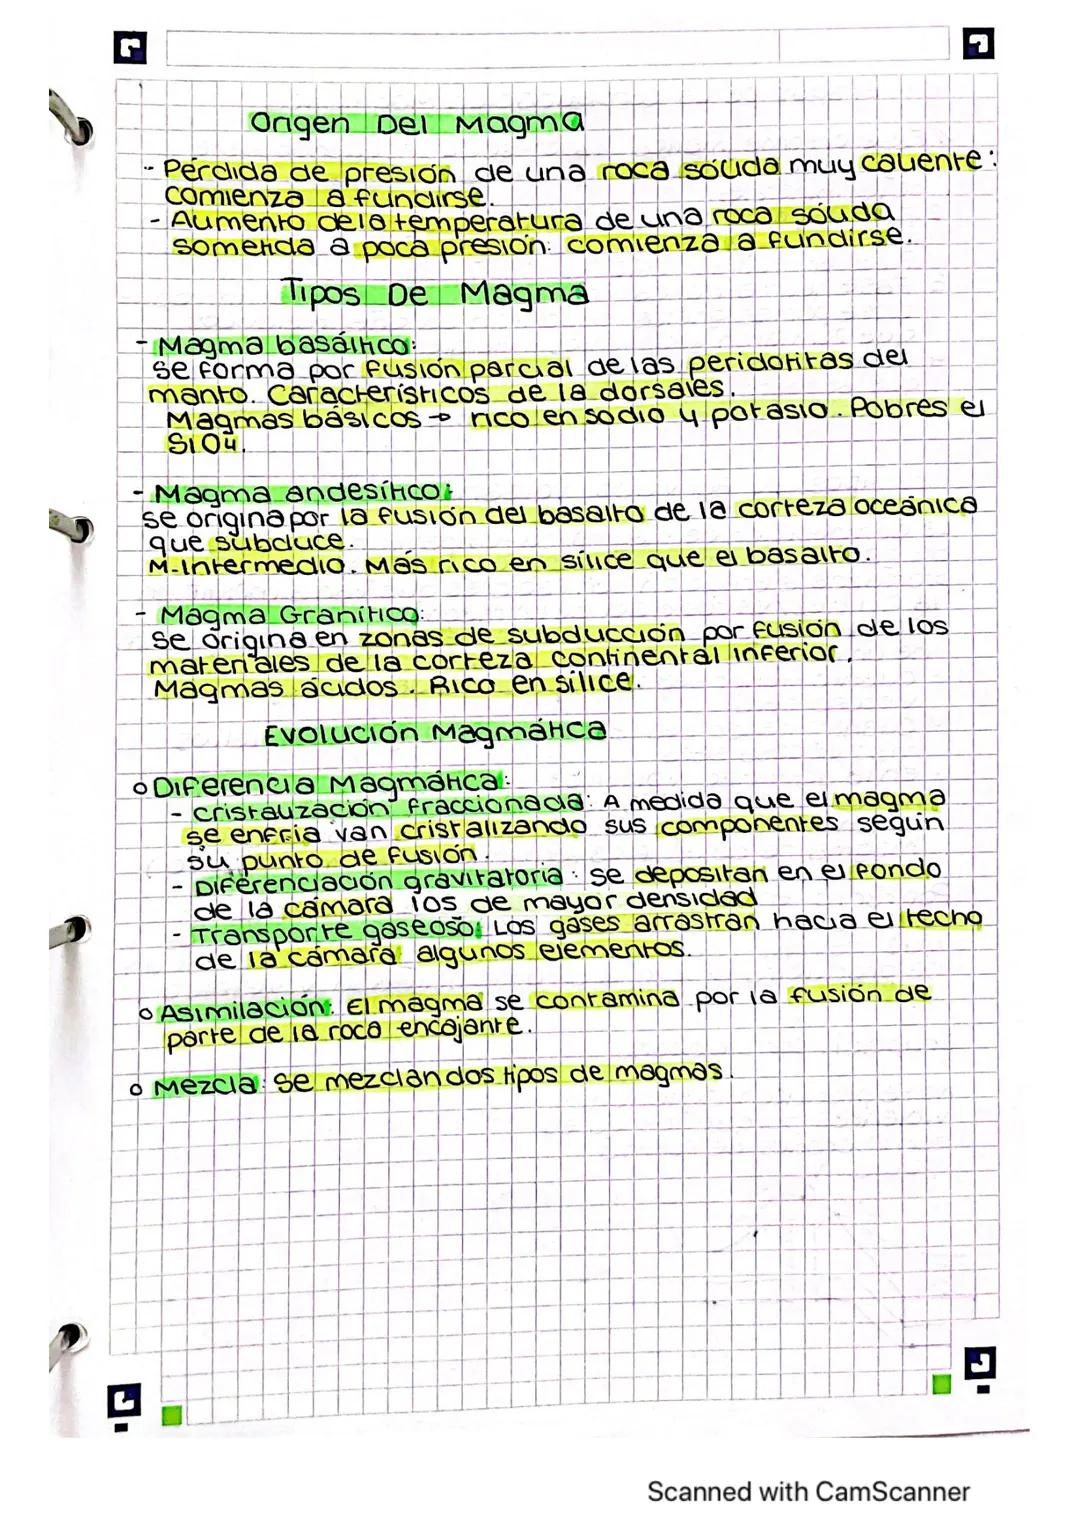 Origen Del Magma
- Pérdida de presión de una roca sólida muy caliente:
comienza a fundirse.
- Aumento de la temperatura de una roca sólida
sometida a poca presión: comienza a fundirse.
Tipos De Magma
- Magma basáltico:
Se forma por fusión parcial de las peridotitas del
manto. Característicos de la dorsales.
Magmas básicos → rico en sodio y potasio. Pobres el
SiO4.
- Magma andesítico:
se origina por la fusión del basalto de la corteza oceánica
que subduce.
M-Intermedio. Más rico en sílice que el basalto.
- Magma Granítico:
Se origina en zonas de subducción por fusión de los
materiales de la corteza continental inferior.
Magmas ácidos. Rico en sílice.
Evolución Magmática
o Diferencia Magmática:
- Cristalización fraccionada: A medida que el magma
se enfria van cristalizando sus componentes según
su punto de fusión.
- Diferenciación gravitatoria: se depositan en el fondo
de la cámara los de mayor densidad
- Transporte gaseoso: Los gases arrastran hacia el techo
de la cámara algunos elementos.
o Asimilación: El magma se contamina por la fusión de
parte de la roca encajante.
o Mezcla: Se mezclan dos tipos de magmas.
Scanned with CamScanner